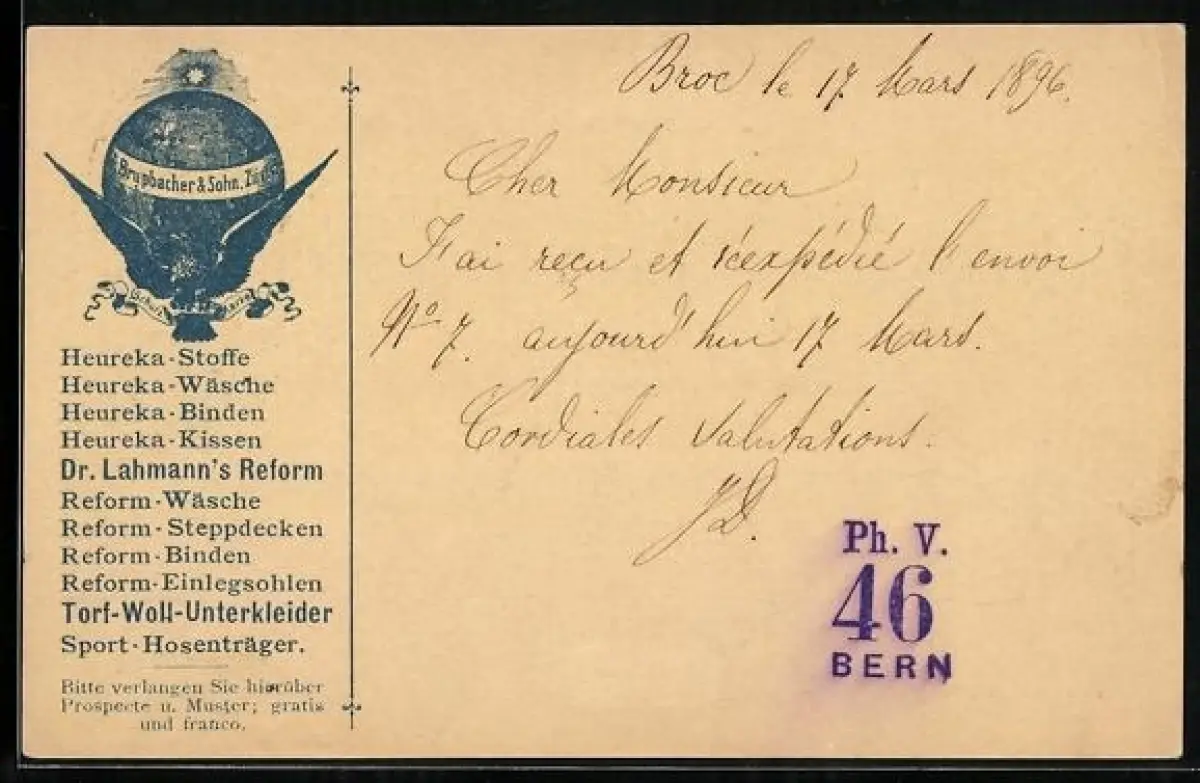 Brupbacher & Sohn, Zürich
Heureka-Stoffe
Heureka-Wäsche
Heureka-Binden
Heureka-Kissen
Dr. Lahmann's Reform
Reform-Wäsche
Reform-Steppdecken
Reform-Binden
Reform-Einlegsohlen
Torf-Woll-Unterkleider
Sport-Hosenträger.
Bitte verlangen Sie hierüber
Prospecte u. Muster; gratis
und franco.
Broc le 17 Mars 1896.
Cher Monsieur
J'ai reçu et réexpédié l'envoi
No 7. aujourd'hui 17 Mars.
Cordiales salutations.
JD.
Ph. V.
46
BERN